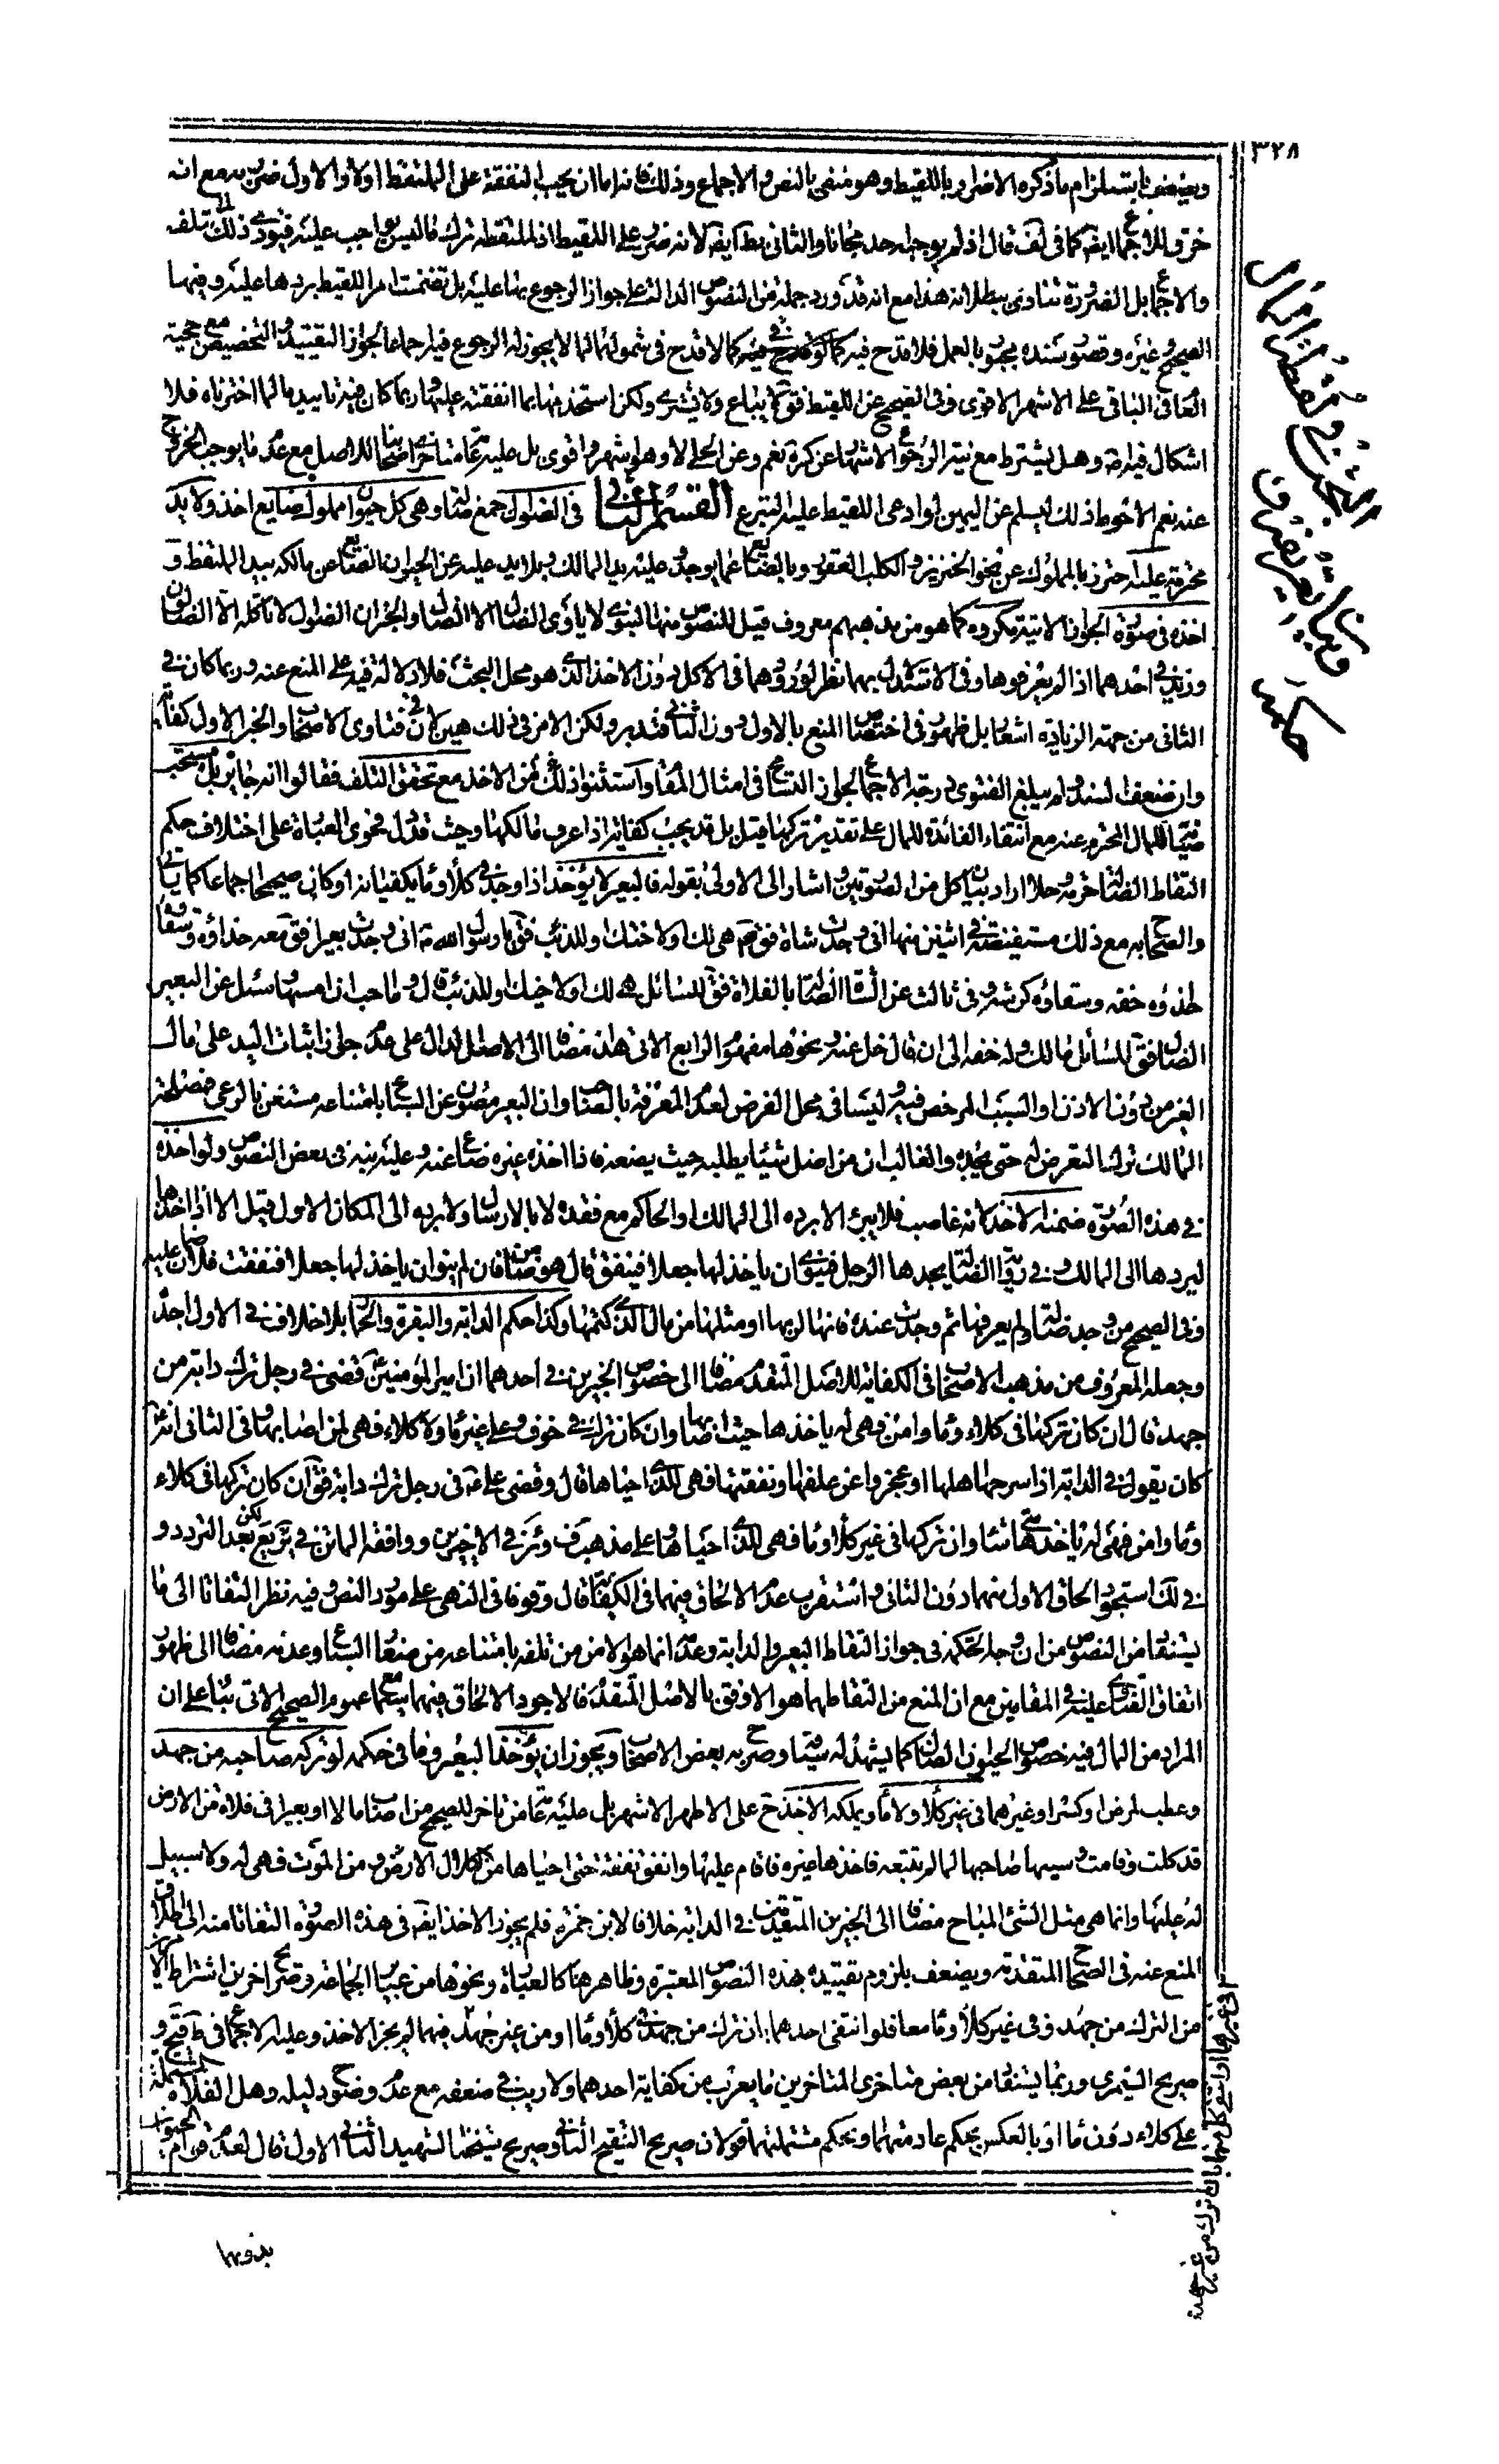 ٣٢٨
ويضعف باستلزام ما ذكره الاضرار باللقيط وهو منفى بالنص والاجماع وذلك فانه اما ان يجب النفقة على الملتقط اولا والاول ضرر به مع انه
خرق للاجماع ايضا كما فى لف قال اذ لم يوجبه احد مجانا والثانى بط ايضا لانه ضرر على اللقيط اذ للملتقط ترك ما ليس بواجب عليه فيؤدى ذلك الى تلفه
والاجماع بل الضرورة تنادى ببطلانه هذا مع انه قد ورد جملة من النصوص الدالة على جواز الرجوع بها عليه بل تضمنت امر اللقيط بردها عليه وفيها
الصحيح وغيره وقصور سنده مجبور بالعمل فلا قدح فيه كما لا قدح فى شمولها لما لا يجوز له الرجوع فيه اجماعا لجواز التقييد والتخصيص مع حجية
العام فى الباقى على الاشهر الاقوى وفى الصحيح عن اللقيط فق لا يباع ولا يشترى ولكن استخدمها بما انفقته عليها وربما كان فيه تاييد ما لما اخترناه فلا
اشكال فيه وهل يشترط مع نية الرجوع الاشهاد عن كرة نعم وعن الحلى لا وهو اشهر واقوى بل عليه عامة متاخرى اصحابنا للاصل مع عدم ما يوجب الخروج
عنه نعم الاحوط ذلك ليسلم عن اليمين لو ادعى اللقيط عليه التبرع القسم الثانى فى الضوال جمع ضالة وهى كل حيوان مملوك ضايع اخذ ولا يد
محترمة عليه احترز بالمملوك عن نحو الخنزير والكلب العقور وبالضايع عما يوجد وعليه يد المالك وبلا يد عليه عن الحيوان الضايع عن مالكه بيد الملتقط و
اخذه فى صورة الجواز الاتية مكروه كما هو من مذهبهم معروف قيل للنصوص منها النبوى لا يأوى الضال الا الضال والخبران الضوال لا ياكله الا الضالون
وزيد فى احدهما اذا لم يعرفوها وفى الاستدلال بهما نظر لورودهما فى الاكل دون الاخذ الذى هو محل البحث فلا دلالة فيه على المنع عنه وربما كان فى
الثانى من جهة الزيادة اشعار بل ظهور فى اختصاص المنع بالاول دون الثانى فتدبر ولكن الامر فى ذلك هين لان فى فتاوى الاصحاب والخبر الاول كفاية
وان ضعف السند ولم يبلغ الفتوى درجة الاجماع لجواز التسامح فى امثال المقام واستثنوا ذلك من الاخذ مع تحقق التلف فقالوا انه جايز بل مستحب
صيانة للمال المحترم عنه مع انتفاء الفائدة للمال على تقدير تركها قيل بل قد يجب كفاية اذا عرف مالكها وحيث قد دل فحوى العبارة على اختلاف حكم
التقاط الضالة حرمة وحلا اراد بيان كل من الصورتين اشار الى الاولى بقوله فالبعير لا يؤخذ اذا وجد فى كلأ وماء يكفيانه او كان صحيحا اجماعا كما ياتى
والصحاح به مع ذلك مستفيضة فى اثنين منها انى وجدت شاة فق هى لك ولاخيك او للذئب فق يا رسول الله انى وجدت بعيرا فق معه حذاؤه وسقاؤه
حذاؤه خفه وسقاؤه كرشه وفى ثالث عن الشاة الضالة بالفلاة فق للسائل هى لك او لاخيك او للذئب قال وما احب ان امسها وسئل عن البعير
الضال فق للسائل مالك وله خفه الى ان قال خل عنه ونحوها مفهوم الرابع الاتى هذا مضافا الى الاصل الدال على عدم جواز اثبات اليد على مال
الغير من دون الاذن او السبب المرخص فيه وليسا فى محل الفرض لعدم المعرفة بالصاحب وان البعير مصون عن السباع بامتناعه مستغن بالرعى فمصلحة
المالك ترك التعرض له حتى يجده والغالب ان من اضل شيئا يطلبه حيث يضعه فاذا اخذه غيره ضاع عنه وعليه نبه فى بعض النصوص ولو اخذه
فى هذه الصورة ضمنه الاخذ لانه غاصب فلا يبرئ الا برده الى المالك او الحاكم مع فقده لا بالارسال ولا برده الى المكان الاول قيل الا اذا اخذها
ليردها الى المالك وفى رواية الضالة يجدها الرجل فينوى ان ياخذ لها جعلا فينفق قال هو ضامن فان لم ينو ان ياخذ لها جعلا فنفقت فلا ضمان عليه
وفى الصحيح من وجد ضالة ولم يعرفها ثم وجدت عنده فانها لربها او مثلها من مال الذى كتمها وكذا حكم الدابة والبقرة والحمار بلا خلاف فى الاول اجده
وجعله المعروف من مذهب الاصحاب فى الكفاية للاصل المتقدم مضافا الى خصوص الخبرين فى احدهما ان امير المؤمنين قضى فى رجل ترك دابته من
جهد قال ان كان تركها فى كلاء وماء وامن فهى له ياخذها حيث اصابها وان كان تركها فى خوف وعلى غير ماء ولا كلاء فهى لمن اصابها وفى الثانى انه
كان يقول فى الدابة اذا سرحها اهلها او عجزوا عن علفها ونفقتها فهى للذى احياها قال وقضى على فى رجل ترك دابة فق ان كان تركها فى كلاء
وماء وامن فهى له ياخذها متى شاء وان تركها فى غير كلأ وماء فهى للذى احياها وعلى مذهب ف وئر فى الاخيرين ووافقه الماتن فى يع بعد التردد و
فى لك استجود الحاق الاول منهما دون الثانى واستقرب عدم الالحاق فيهما فى الكفاية قال وقوفا فى النهى على مورد النص وفيه نظر التفاتا الى ما
يستفاد من النصوص من ان وجه الحكمة فى جواز التقاط البعير والدابة وعدمه انما هو الامن من تلفه بامتناعه من صغار السباع وعدمه مضافا الى ظهور
اتفاق القدماء عليه فى المقامين مع ان المنع من التقاطهما هو الاوفق بالاصل المتقدم فالاجود الالحاق فيهما عموم الصحيح الاتى بناء على ان
المراد من المال فيه خصوص الحيوان الضال كما يشهد له سياقه وصرح به بعض الاصحاب ويجوز ان يؤخذ البعير وما فى حكمه لو تركه صاحبه من جهد
وعطب لمرض او كسر او غيرهما فى غير كلأ ولا ماء ويملكه الاخذ ح على الاظهر الاشهر بل عليه عامة من تاخر للصحيح من اصاب مالا او بعيرا فى فلاة من الارض
قد كلت وقامت وسيبها صاحبها لما لم يتبعه فاخذها غيره فاقام عليها وانفق نفقة حتى احياها من الكلال ومن الموت فهى له ولا سبيل
له عليها وانما هى مثل الشئ المباح مضافا الى الخبرين المتقدمين فى الدابة خلافا لابن حمزة فلم يجوز الاخذ ايضا فى هذه الصورة التفاتا منه الى اطلاق
المنع عنه فى الصحاح المتقدمة ويضعف بلزوم تقييده بهذه النصوص المعتبرة وظاهرها كالعبارة ونحوها من عبائر الجماعة وصريح اخرين اشتراط الامرين
من الترك من جهد وفى غير كلأ وماء معا فلو انتفى احدهما بان ترك من جهد فى كلأ وماء او من غير جهد فيهما لم يجز الاخذ وعليه الاجماع فى ظ قيح و
صريح الصيمرى وربما يستفاد من بعض متاخرى المتاخرين ما يعرب عن كفاية احدهما ولا ريب فى ضعفه مع عدم وضوح دليله وهل الفلاة المشتملة
على كلاء دون ماء او بالعكس بحكم عادمتهما او بحكم مشتملتهما قولان صريح التنقيح الثانى وصريح شيخنا الشهيد الثانى الاول قال لعدم قوام الحيوان
بدونها